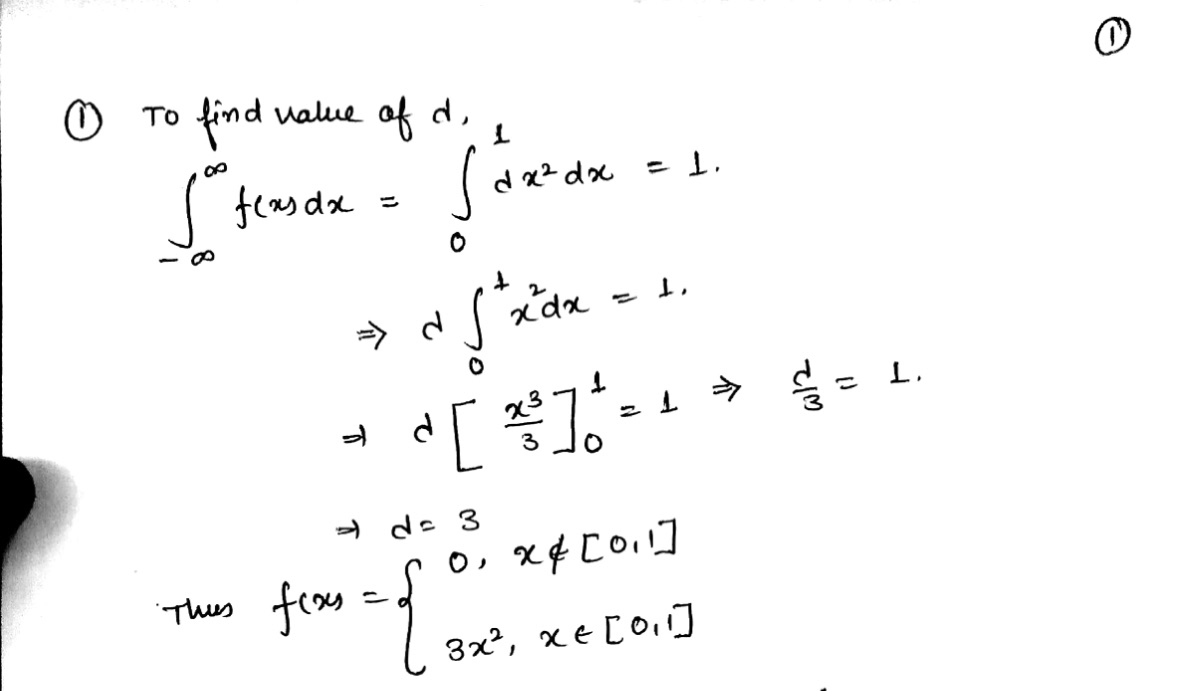 ①
① To find value of d,
∫_{-∞}^{∞} f(x) dx = ∫_0^1 d x² dx = 1.
⇒ d ∫_0^1 x² dx = 1.
⇒ d [ x³/3 ]_0^1 = 1 ⇒ d/3 = 1.
⇒ d = 3
Thus f(x) = { 0, x ∉ [0,1]
3x², x ∈ [0,1]